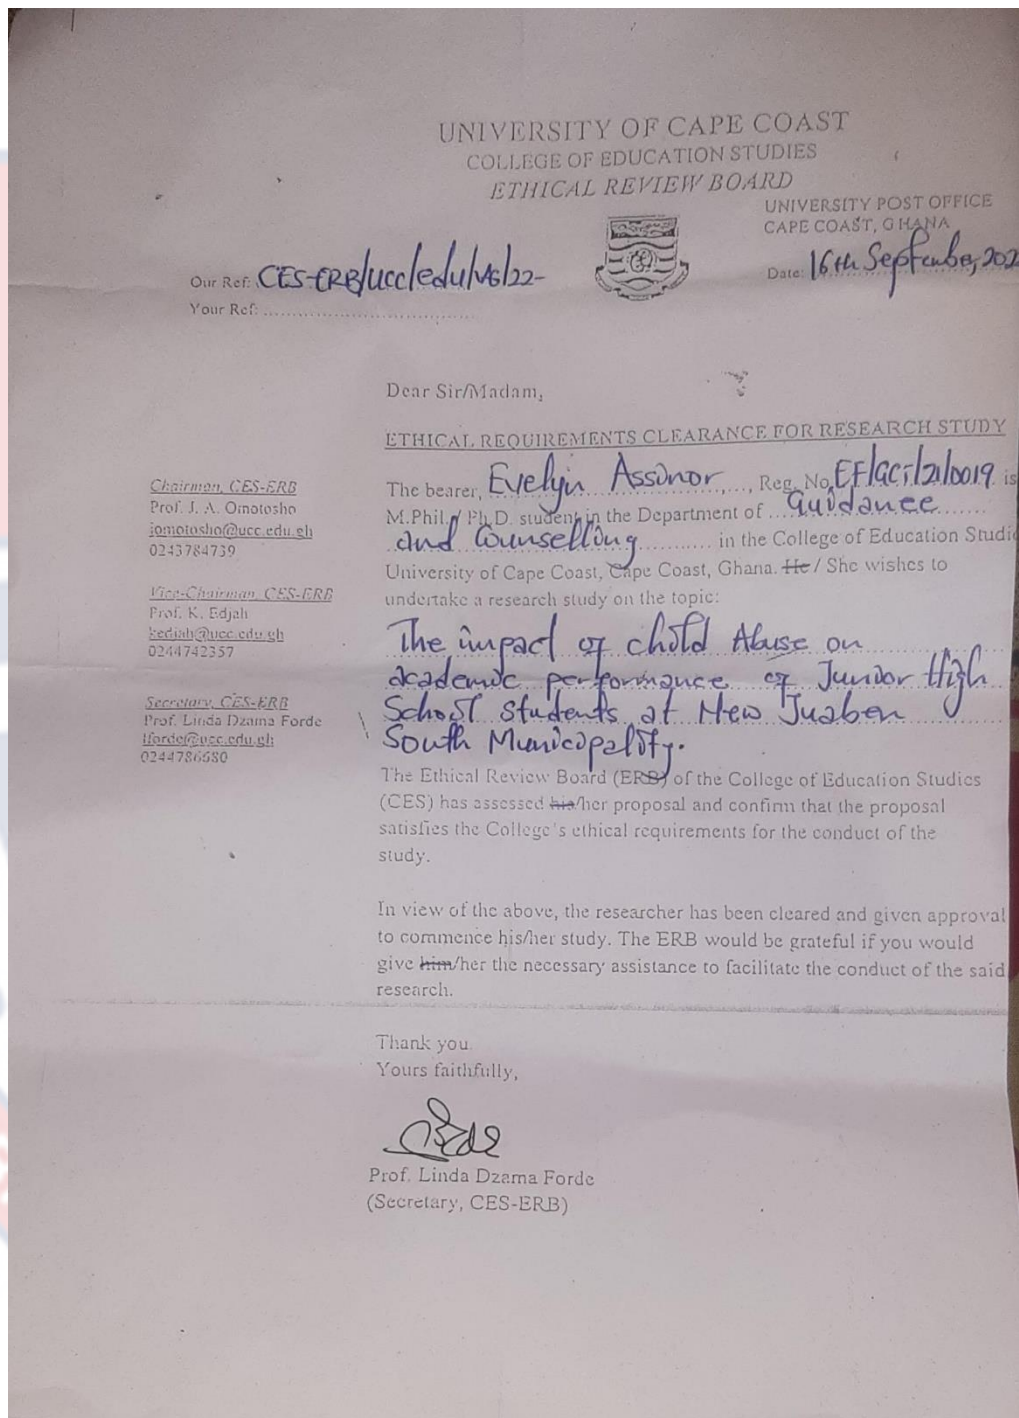 UNIVERSITY OF CAPE COAST
COLLEGE OF EDUCATION STUDIES
ETHICAL REVIEW BOARD
UNIVERSITY POST OFFICE
CAPE COAST, GHANA
Our Ref: CES-ERB/ucc/edu/V6/22-
Date: 16th September, 202
Your Ref: ....................................
Dear Sir/Madam,
ETHICAL REQUIREMENTS CLEARANCE FOR RESEARCH STUDY
Chairman, CES-ERB
Prof. J. A. Omotosho
jomotosho@ucc.edu.gh
0243784739
Vice-Chairman, CES-ERB
Prof. K. Edjah
kedjah@ucc.edu.gh
0244742357
Secretary, CES-ERB
Prof. Linda Dzama Forde
lforde@ucc.edu.gh
0244786680
The bearer, Evelyn Assunor, Reg. No. is
M.Phil. / Ph.D. student in the Department of Guidance
and Counselling in the College of Education Studi
University of Cape Coast, Cape Coast, Ghana. He / She wishes to
undertake a research study on the topic:
The impact of child Abuse on
academic performance of Junior High
School students at New Juaben
South Municipality.
The Ethical Review Board (ERB) of the College of Education Studies
(CES) has assessed his/her proposal and confirm that the proposal
satisfies the College's ethical requirements for the conduct of the
study.
In view of the above, the researcher has been cleared and given approval
to commence his/her study. The ERB would be grateful if you would
give him/her the necessary assistance to facilitate the conduct of the said
research.
Thank you.
Yours faithfully,
Prof. Linda Dzama Forde
(Secretary, CES-ERB)